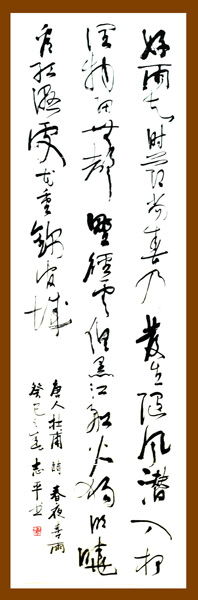 好雨知时节当春乃發生随风潜入夜
润物细无聲野径云俱黑江船火独明曉
看红湿处花重锦官城
唐人杜甫詩春夜喜雨
癸巳之春志平书